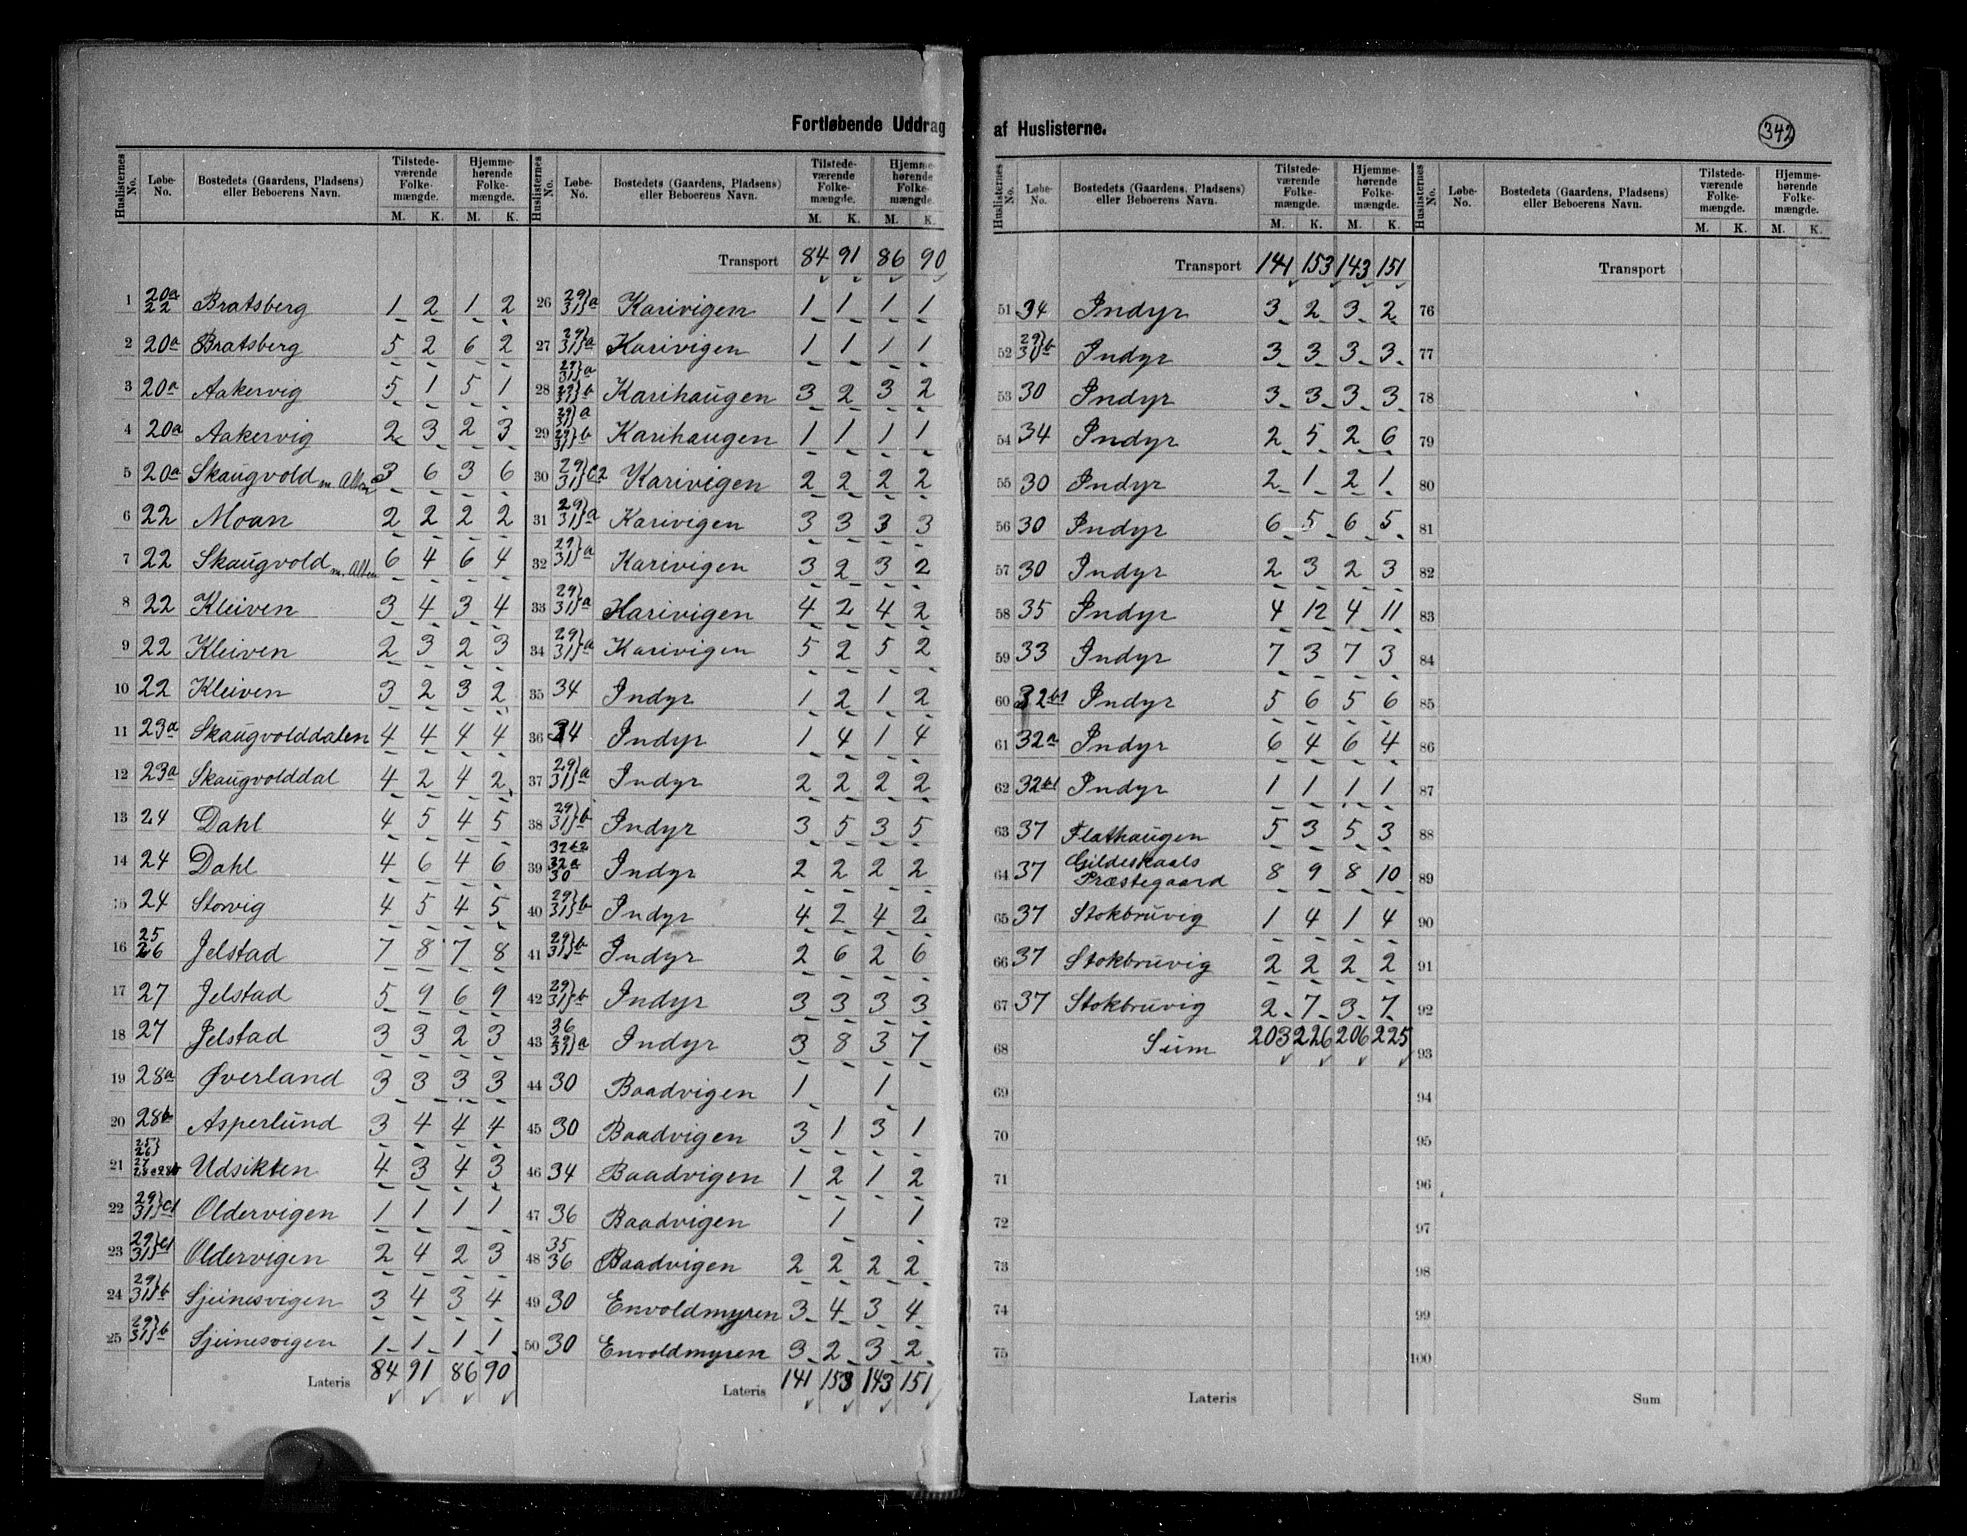 Fortløbende Uddrag af Huslisterne.
342
Huslisternes No. Løbe-No. Bostedets (Gaardens, Pladsens) eller Beboerens Navn. Tilstedeværende Folkemængde. M. K. Hjemmehørende Folkemængde. M. K.
1 20a 22 Bratsberg 1 2 1 2
2 20a Bratsberg 5 2 6 2
3 20a Aakervig 5 1 5 1
4 20a Aakervig 2 3 2 3
5 20a Skaugvold m. 3 6 3 6
6 22 Moan 2 2 2 2
7 22 Skaugvold m. 6 4 6 4
8 22 Kleiven 3 4 3 4
9 22 Kleiven 2 3 2 3
10 22 Kleiven 3 2 3 2
11 23a Skaugvolddalen 4 4 4 4
12 23a Skaugvolddal 4 2 4 2
13 24 Dahl 4 5 4 5
14 24 Dahl 4 6 4 6
15 24 Storvig 4 5 4 5
16 25 26 Jelstad 7 8 7 8
17 27 Jelstad 5 9 6 9
18 27 Jelstad 3 3 2 3
19 28a Øverland 3 3 3 3
20 28b Asperlund 3 4 4 4
21 25 26} 27 28a 28b Udsikten 4 3 4 3
22 29 31}c1 Oldervigen 1 1 1 1
23 29 31}c1 Oldervigen 2 4 2 3
24 29 31}b Sjeinesvigen 3 4 3 4
25 29 31}b Sjeinesvigen 1 1 1 1
Lateris 84 91 86 90
Huslisternes No. Løbe-No. Bostedets (Gaardens, Pladsens) eller Beboerens Navn. Tilstedeværende Folkemængde. M. K. Hjemmehørende Folkemængde. M. K.
Transport 84 91 86 90
26 29 31}a Karivigen 1 1 1 1
27 29 31}a Karivigen 1 1 1 1
28 29 31}a 29 31}b Karihaugen 3 2 3 2
29 29 31}a 29 31}b Karihaugen 1 1 1 1
30 29 31}c2 Karivigen 2 2 2 2
31 29 31}a Karivigen 3 3 3 3
32 29 31}a Karivigen 3 2 3 2
33 29 31}a Karivigen 4 2 4 2
34 29 31}a Karivigen 5 2 5 2
35 34 Indyr 1 2 1 2
36 34 Indyr 1 4 1 4
37 29 31}a Indyr 2 2 2 2
38 29 31}b Indyr 3 5 3 5
39 32b2 32a 30 Indyr 2 2 2 2
40 29 31}b Indyr 4 2 4 2
41 29 31}b Indyr 2 6 2 6
42 29 31}b Indyr 3 3 3 3
43 36 29 31}a Indyr 3 8 3 7
44 30 Baadvigen 1 1
45 30 Baadvigen 3 1 3 1
46 34 Baadvigen 1 2 1 2
47 36 Baadvigen 1 1
48 35 36 Baadvigen 2 2 2 2
49 30 Envoldmyren 3 4 3 4
50 30 Envoldmyren 3 2 3 2
Lateris 141 153 143 151
Huslisternes No. Løbe-No. Bostedets (Gaardens, Pladsens) eller Beboerens Navn. Tilstedeværende Folkemængde. M. K. Hjemmehørende Folkemængde. M. K.
Transport 141 153 143 151
51 34 Indyr 3 2 3 2
52 29 31}b Indyr 3 3 3 3
53 30 Indyr 3 3 3 3
54 34 Indyr 2 5 2 6
55 30 Indyr 2 1 2 1
56 30 Indyr 6 5 6 5
57 30 Indyr 2 3 2 3
58 35 Indyr 4 12 4 11
59 33 Indyr 7 3 7 3
60 32b1 Indyr 5 6 5 6
61 32a Indyr 6 4 6 4
62 32b1 Indyr 1 1 1 1
63 37 Flathaugen 5 3 5 3
64 37 Gildeskaals Præstegaard 8 9 8 10
65 37 Stokbruvig 1 4 1 4
66 37 Stokbruvig 2 2 2 2
67 37 Stokbruvig 2 7 3 7
68 Sum 203 226 206 225
69
70
71
72
73
74
75
Lateris
Huslisternes No. Løbe-No. Bostedets (Gaardens, Pladsens) eller Beboerens Navn. Tilstedeværende Folkemængde. M. K. Hjemmehørende Folkemængde. M. K.
Transport
76
77
78
79
80
81
82
83
84
85
86
87
88
89
90
91
92
93
94
95
96
97
98
99
100
Sum